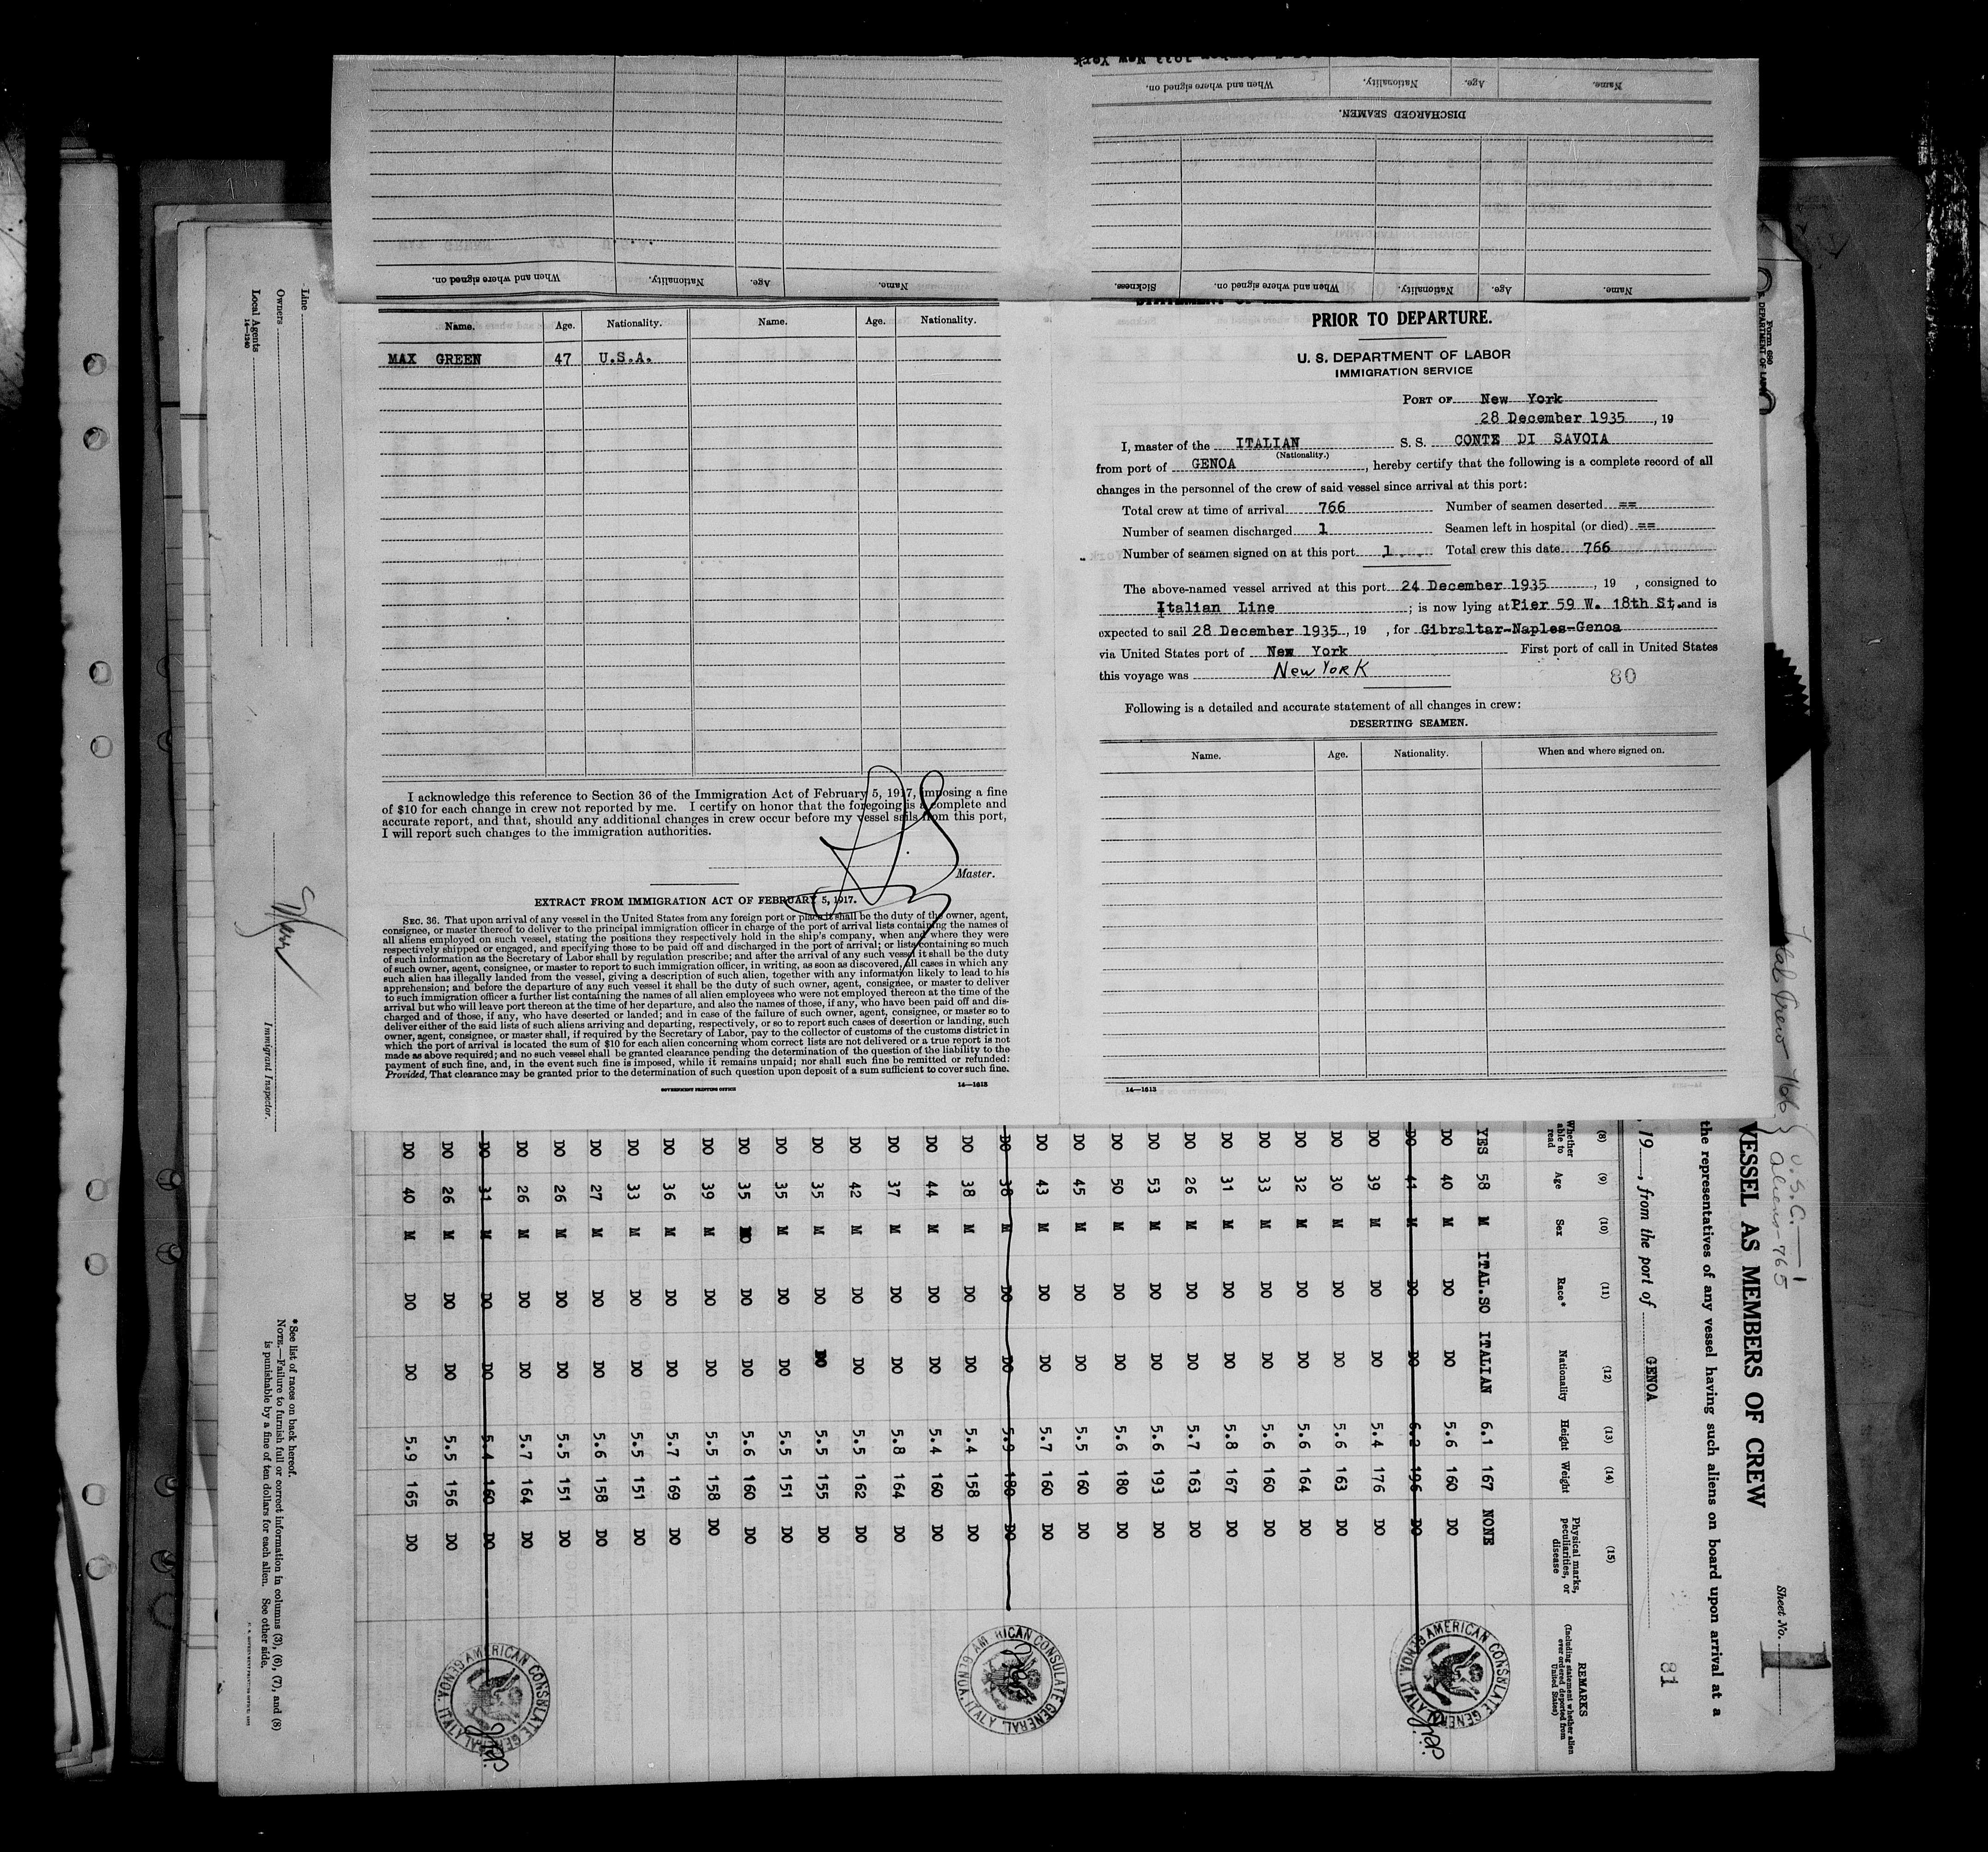 Name. Age. Nationality. When and where signed on.
Name. Age. Nationality. When and where signed on.
DISCHARGED SEAMEN.
Name. Age. Nationality. When and where signed on. Sickness.
Name. Age. Nationality. Name. Age. Nationality.
MAX GREEN 47 U.S.A.
I acknowledge this reference to Section 36 of the Immigration Act of February 5, 1917, imposing a fine
of $10 for each change in crew not reported by me. I certify on honor that the foregoing is a complete and
accurate report, and that, should any additional changes in crew occur before my vessel sails from this port,
I will report such changes to the immigration authorities.
Master.
EXTRACT FROM IMMIGRATION ACT OF FEBRUARY 5, 1917.
SEC. 36. That upon arrival of any vessel in the United States from any foreign port or place it shall be the duty of the owner, agent,
consignee, or master thereof to deliver to the principal immigration officer in charge of the port of arrival lists containing the names of
all aliens employed on such vessel, stating the positions they respectively hold in the ship's company, when and where they were
respectively shipped or engaged, and specifying those to be paid off and discharged in the port of arrival; or lists containing so much
of such information as the Secretary of Labor shall by regulation prescribe; and after the arrival of any such vessel it shall be the duty
of such owner, agent, consignee, or master to report to such immigration officer, in writing, as soon as discovered, all cases in which any
such alien has illegally landed from the vessel, giving a description of such alien, together with any information likely to lead to his
apprehension; and before the departure of any such vessel it shall be the duty of such owner, agent, consignee, or master to deliver
to such immigration officer a further list containing the names of all alien employees who were not employed thereon at the time of the
arrival but who will leave port thereon at the time of her departure, and also the names of those, if any, who have been paid off and dis-
charged and of those, if any, who have deserted or landed; and in case of the failure of such owner, agent, consignee, or master so to
deliver either of the said lists of such aliens arriving and departing, respectively, or so to report such cases of desertion or landing, such
owner, agent, consignee, or master shall, if required by the Secretary of Labor, pay to the collector of customs of the customs district in
which the port of arrival is located the sum of $10 for each alien concerning whom correct lists are not delivered or a true report is not
made as above required; and no such vessel shall be granted clearance pending the determination of the question of the liability to the
payment of such fine, and, in the event such fine is imposed, while it remains unpaid; nor shall such fine be remitted or refunded:
Provided, That clearance may be granted prior to the determination of such question upon deposit of a sum sufficient to cover such fine.
GOVERNMENT PRINTING OFFICE 14—1613
PRIOR TO DEPARTURE.
U. S. DEPARTMENT OF LABOR
IMMIGRATION SERVICE
PORT OF New York
28 December 1935, 19
I, master of the ITALIAN S. S. CONTE DI SAVOIA
(Nationality.)
from port of GENOA, hereby certify that the following is a complete record of all
changes in the personnel of the crew of said vessel since arrival at this port:
Total crew at time of arrival 766 Number of seamen deserted ==
Number of seamen discharged 1 Seamen left in hospital (or died) ==
Number of seamen signed on at this port 1 Total crew this date 766
The above-named vessel arrived at this port 24 December 1935, 19 , consigned to
Italian Line; is now lying at Pier 59 W. 18th St. and is
expected to sail 28 December 1935, 19 , for Gibraltar-Naples-Genoa
via United States port of New York First port of call in United States
this voyage was New York
80
Following is a detailed and accurate statement of all changes in crew:
DESERTING SEAMEN.
Name. Age. Nationality. When and where signed on.
14—1613
Form 680
Total Crew 766 { U.S.C. — 1
Aliens - 765
Sheet No. 1
VESSEL AS MEMBERS OF CREW
the representatives of any vessel having such aliens on board upon arrival at a
81
, 19 , from the port of GENOA
(8) (9) (10) (11) (12) (13) (14) (15)
Whether able to read Age Sex Race* Nationality Height Weight Physical marks, peculiarities, or disease REMARKS
(Including statement whether alien ever ordered deported from United States)
YES 58 M ITAL.SO ITALIAN 6.1 167 NONE
DO 40 M DO DO 5.6 160 DO
DO 41 M DO DO 6.2 196 DO
DO 39 M DO DO 5.4 176 DO
DO 30 M DO DO 5.6 163 DO
DO 32 M DO DO 5.6 164 DO
DO 33 M DO DO 5.6 160 DO
DO 31 M DO DO 5.8 167 DO
DO 26 M DO DO 5.7 163 DO
DO 53 M DO DO 5.6 193 DO
DO 50 M DO DO 5.6 180 DO
DO 45 M DO DO 5.5 160 DO
DO 43 M DO DO 5.7 160 DO
DO 38 M DO DO 5.9 180 DO
DO 38 M DO DO 5.4 158 DO
DO 44 M DO DO 5.4 160 DO
DO 37 M DO DO 5.8 164 DO
DO 42 M DO DO 5.5 162 DO
DO 35 M DO DO 5.5 155 DO
DO 35 M DO DO 5.5 151 DO
DO 35 M DO DO 5.6 160 DO
DO 39 M DO DO 5.5 158 DO
DO 36 M DO DO 5.7 169 DO
DO 33 M DO DO 5.5 151 DO
DO 27 M DO DO 5.6 158 DO
DO 26 M DO DO 5.5 151 DO
DO 26 M DO DO 5.7 164 DO
DO 31 M DO DO 5.4 160 DO
DO 26 M DO DO 5.5 156 DO
DO 40 M DO DO 5.9 165 DO
AMERICAN CONSULATE GENERAL GENOA, ITALY
AMERICAN CONSULATE GENERAL GENOA, ITALY
AMERICAN CONSULATE GENERAL GENOA, ITALY
Line
Owners
Local Agents
14—1240
Immigrant Inspector.
* See list of races on back hereof.
NOTE.—Failure to furnish full or correct information in columns (3), (6), (7), and (8)
is punishable by a fine of ten dollars for each alien. See other side.